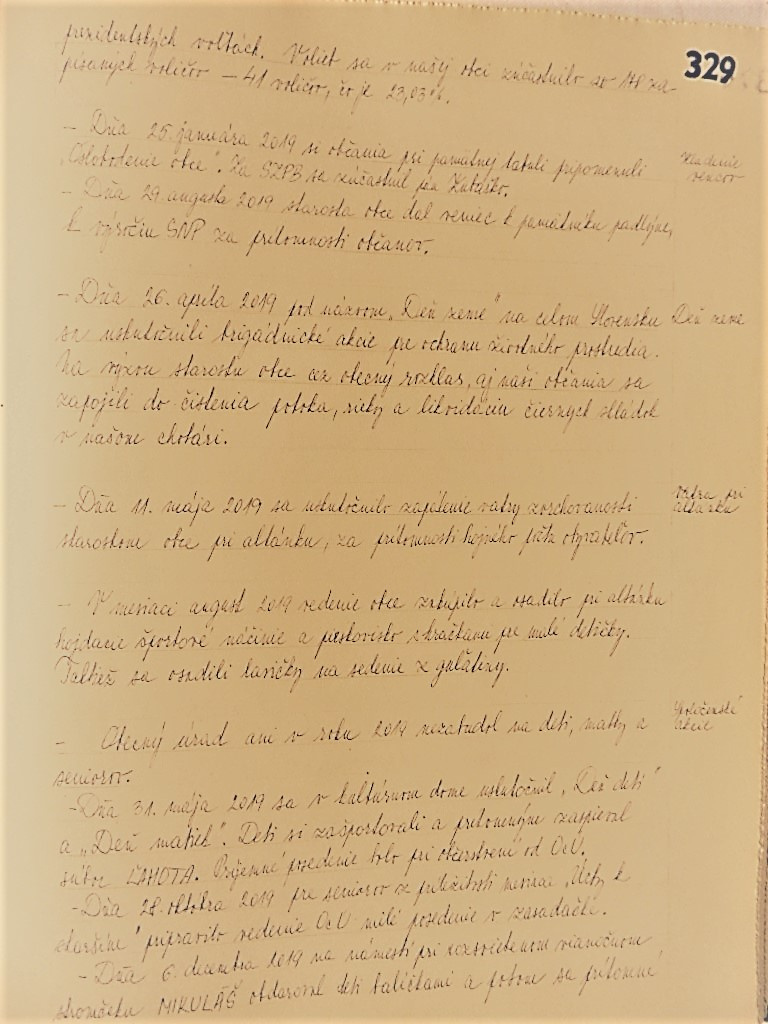 prezidentských voľbách. Volieb sa v našej obci zúčastnilo zo 178 za-
písaných voličov – 41 voličov, čo je 23,03%.
329
– Dňa 25. januára 2019 si občania pri pamätnej tabuli pripomenuli
„Oslobodenie obce". Za SZPB sa zúčastnil pán
Kladenie
vencov
– Dňa 29. augusta 2019 starosta obce dal veniec k pamätníku padlým,
k výročiu SNP za prítomnosti občanov.
– Dňa 26. apríla 2019 pod názvom „Deň zeme" na celom Slovensku
Deň zeme
sa uskutočnili brigádnické akcie pre ochranu životného prostredia.
Na výzvu starostu obce cez obecný rozhlas, aj naši občania sa
zapojili do čistenia potoka, rieky a likvidáciu čiernych skládok
v našom chotári.
– Dňa 11. mája 2019 sa uskutočnilo zapálenie vatry zorchovanosti
Vatra pri
altánku
starostom obce pri altánku, za prítomnosti hojného počtu obyvateľov.
– V mesiaci august 2019 vedenie obce zakúpilo a osadilo pri altánku
hojdacie športové náčinie a pieskovisko s hračkami pre malé detičky.
Taktiež sa osadili lavičky na sedenie z guľatiny.
– Obecný úrad ani v roku 2019 nezabudol na deti, matky a
Spoločenské
akcie
seniorov.
– Dňa 31. mája 2019 sa v kultúrnom dome uskutočnil „Deň detí"
a „Deň matiek". Deti si zašportovali a prítomným zaspieval
súbor LAHOTA. Príjemné posedenie bolo pri občerstvení od OcÚ.
– Dňa 28. októbra 2019 pre seniorov z príležitosti mesiac „Úcty k
starším" pripravilo vedenie OcÚ milé posedenie v zasadačke.
– Dňa 6. decembra 2019 na námestí pri rozsvietenom vianočnom
stromčeku MIKULÁŠ obdaroval deti balíčkami a potom sa prítomné